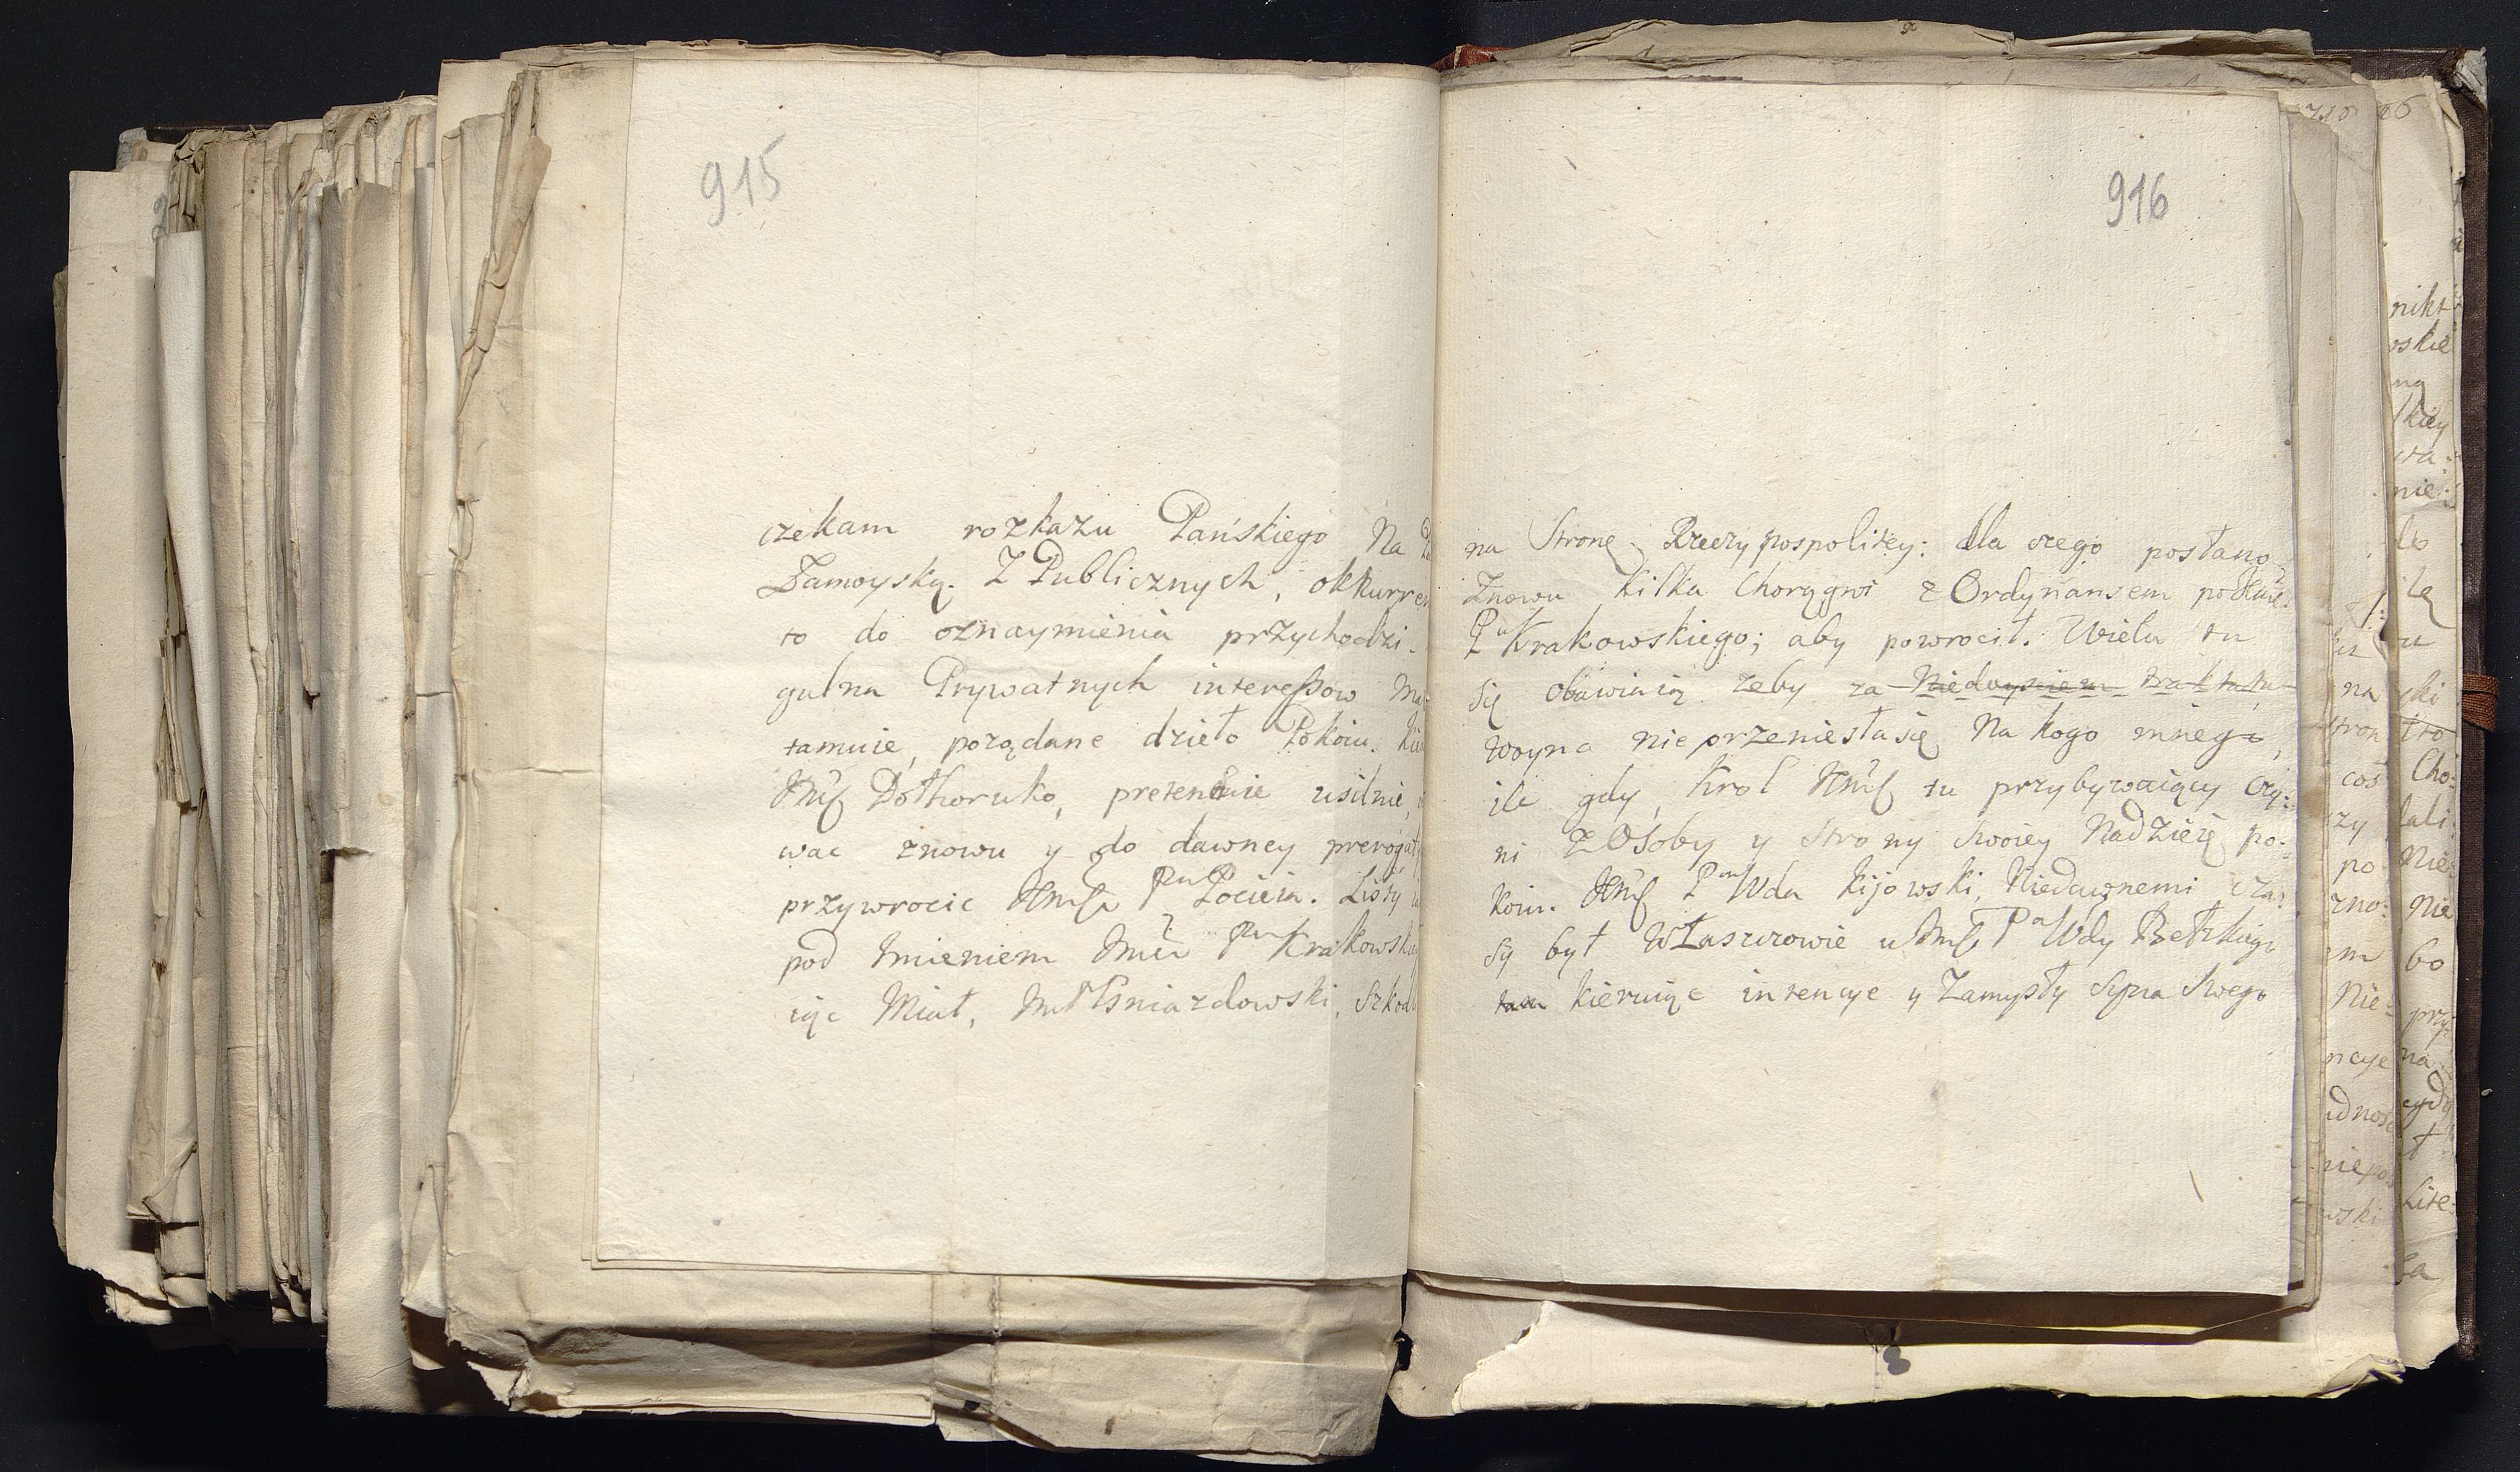 915
czekam rozkazu Pańskiego Na
Zamoyską. Z Publicznych, okkurren
to do oznaymienia przychodzi.
gulna Prywatnych interessow
tamuie, porządane dzieło Pokoiu.
Jmć Dołhoruko, pretenduie usilnie,
wać znowu y do dawney prerogat
przywrocic Jmći Pna Pocieia. Listy
pod Imieniem Jmći Pna Krakowski
iąc Miał, Jmć P Gniazdowski, Szkod
916
na Stronę Rzeczypospolitey: dla czego posłano
Znowu kilka Chorągwi z Ordynansem
Pna Krakowskiego; aby powrocił. Wielu tu
się obawiaią zeby za Niedoysciem traktatu
woyna nie przeniesła się Na kogo innego,
ile gdy, Krol Jmć tu przybywaiący czy:
ni z Osoby y strony swoiey Nadzieię po:
koiu. Jmć Pan Wda Kijowski, Niedawnemi cza:
sy był w Łaszczowie u Jmći Pa Wdy Bełzkiego
kieruiąc intencye y Zamysły Syna Swego